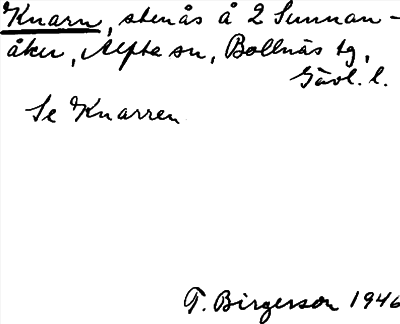 Knarn, stenås å 2 Sunnan-
åker, Alfta sn, Bollnäs tg,
Gävl. l.
Se Knarren
T. Birgerson 1946